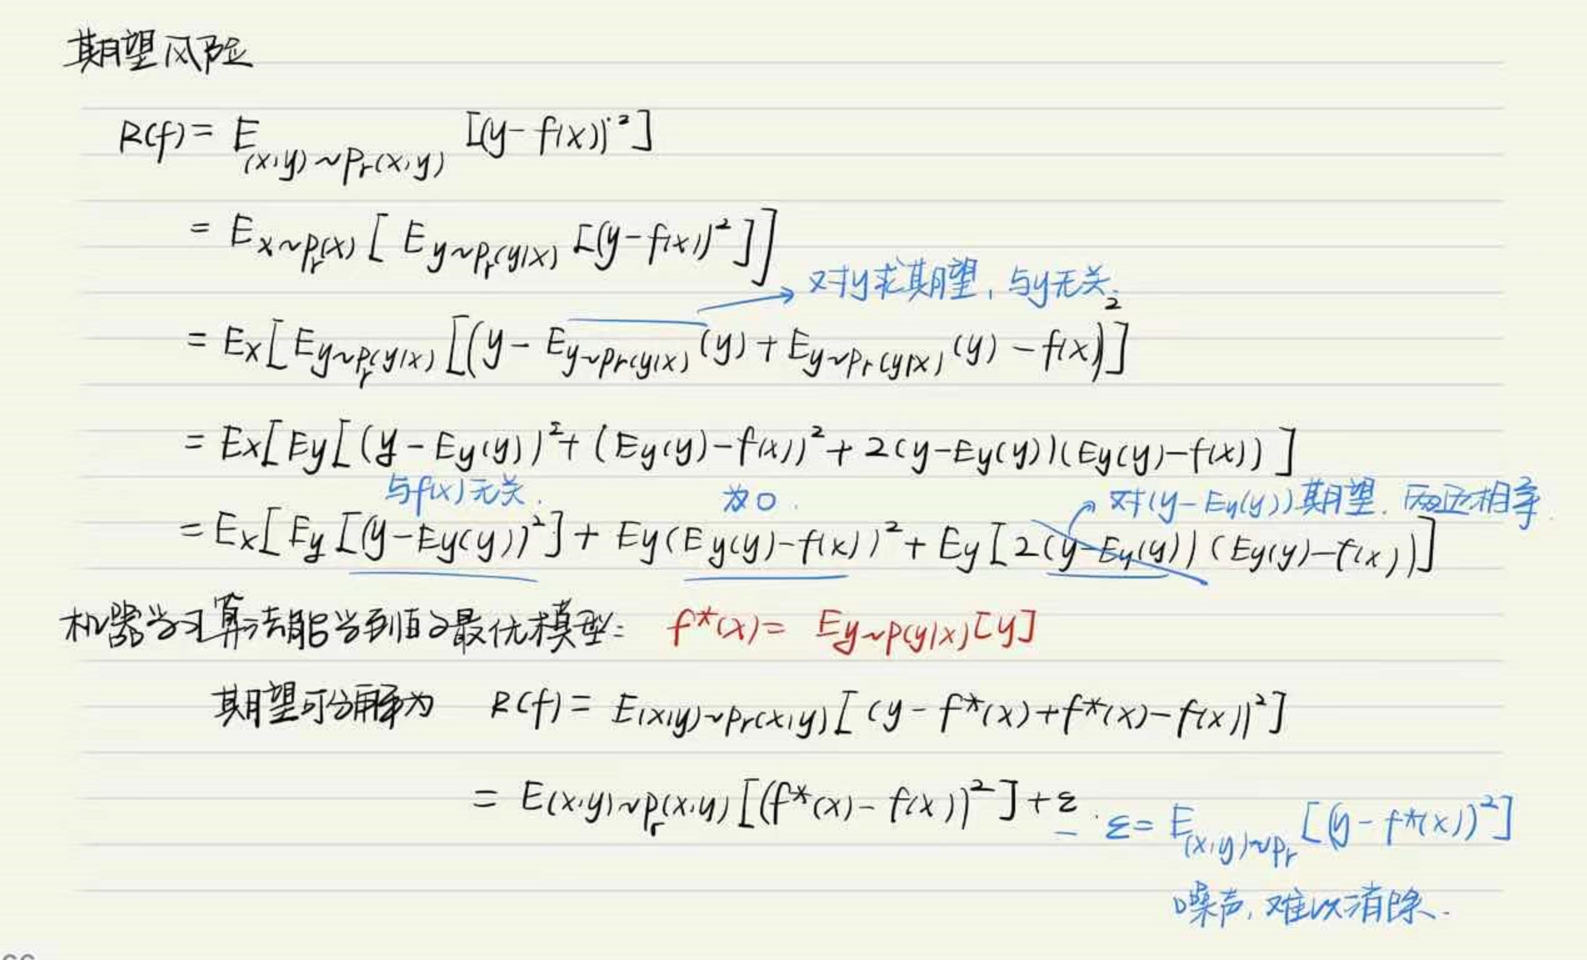 期望风险
R(f) = E_{(x,y)~Pr(x,y)} [(y-f(x))²]
= E_{x~Pr(x)} [ E_{y~Pr(y|x)} [(y-f(x))²]]
对y求期望，与y无关.
= Ex[E_{y~Pr(y|x)} [(y - E_{y~Pr(y|x)}(y) + E_{y~Pr(y|x)}(y) - f(x))²]
= Ex[Ey[(y-Ey(y))² + (Ey(y)-f(x))² + 2(y-Ey(y))(Ey(y)-f(x))]
与f(x)无关. 为0. 对(y-Ey(y))期望. 相等
= Ex[Ey[(y-Ey(y))²] + Ey(Ey(y)-f(x))² + Ey[2(y-Ey(y))(Ey(y)-f(x))]]
机器学习算法能学到的最优模型: f*(x) = E_{y~p(y|x)}[y]
期望可分解为 R(f) = E_{(x,y)~Pr(x,y)}[(y-f*(x)+f*(x)-f(x))²]
= E_{(x,y)~Pr(x,y)}[(f*(x)-f(x))²]+ε. ε= E_{(x,y)~Pr}[(y-f*(x))²]
噪声, 难以消除.